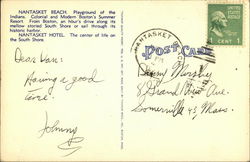 NANTASKET BEACH. Playground of the
Indians. Colonial and Modern Boston's Summer
Resort. From Boston, an hour's drive along its
mellow storied South Shore or sail through its
historic harbor.
NANTASKET HOTEL. The center of life on
the South Shore.
POST CARD
NANTASKET
1 CENT 1
Dear Dan:
Having a good
time.
Johnny
Danny Murphy
8 Grand View Ave
Somerville 43, Mass.